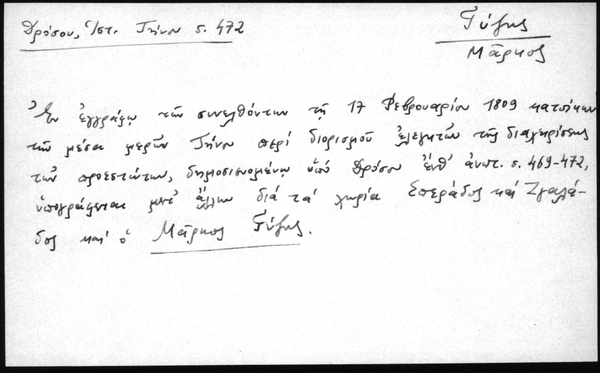 Δρόσου, Ἱστ. Τήνου σ. 472
Γύζης
Μᾶρκος
Ἐν ἐγγράφῳ τῶν συνελθόντων τῇ 17 Φεβρουαρίου 1809 κατοίκων
τῶν μέσα μερῶν Τήνου περί διορισμοῦ ἐλεγκτῶν τῆς διαχειρίσεως
τῶν προεστώτων, δημοσιευομένῳ ὑπό Δρόσου ἔνθ' ἀνωτ. σ. 469-472,
ὑπογράφεται μετ' ἄλλων διά τά χωρία Σπεράδος καί Σγαλά-
δος καί ὁ Μᾶρκος Γύζης.